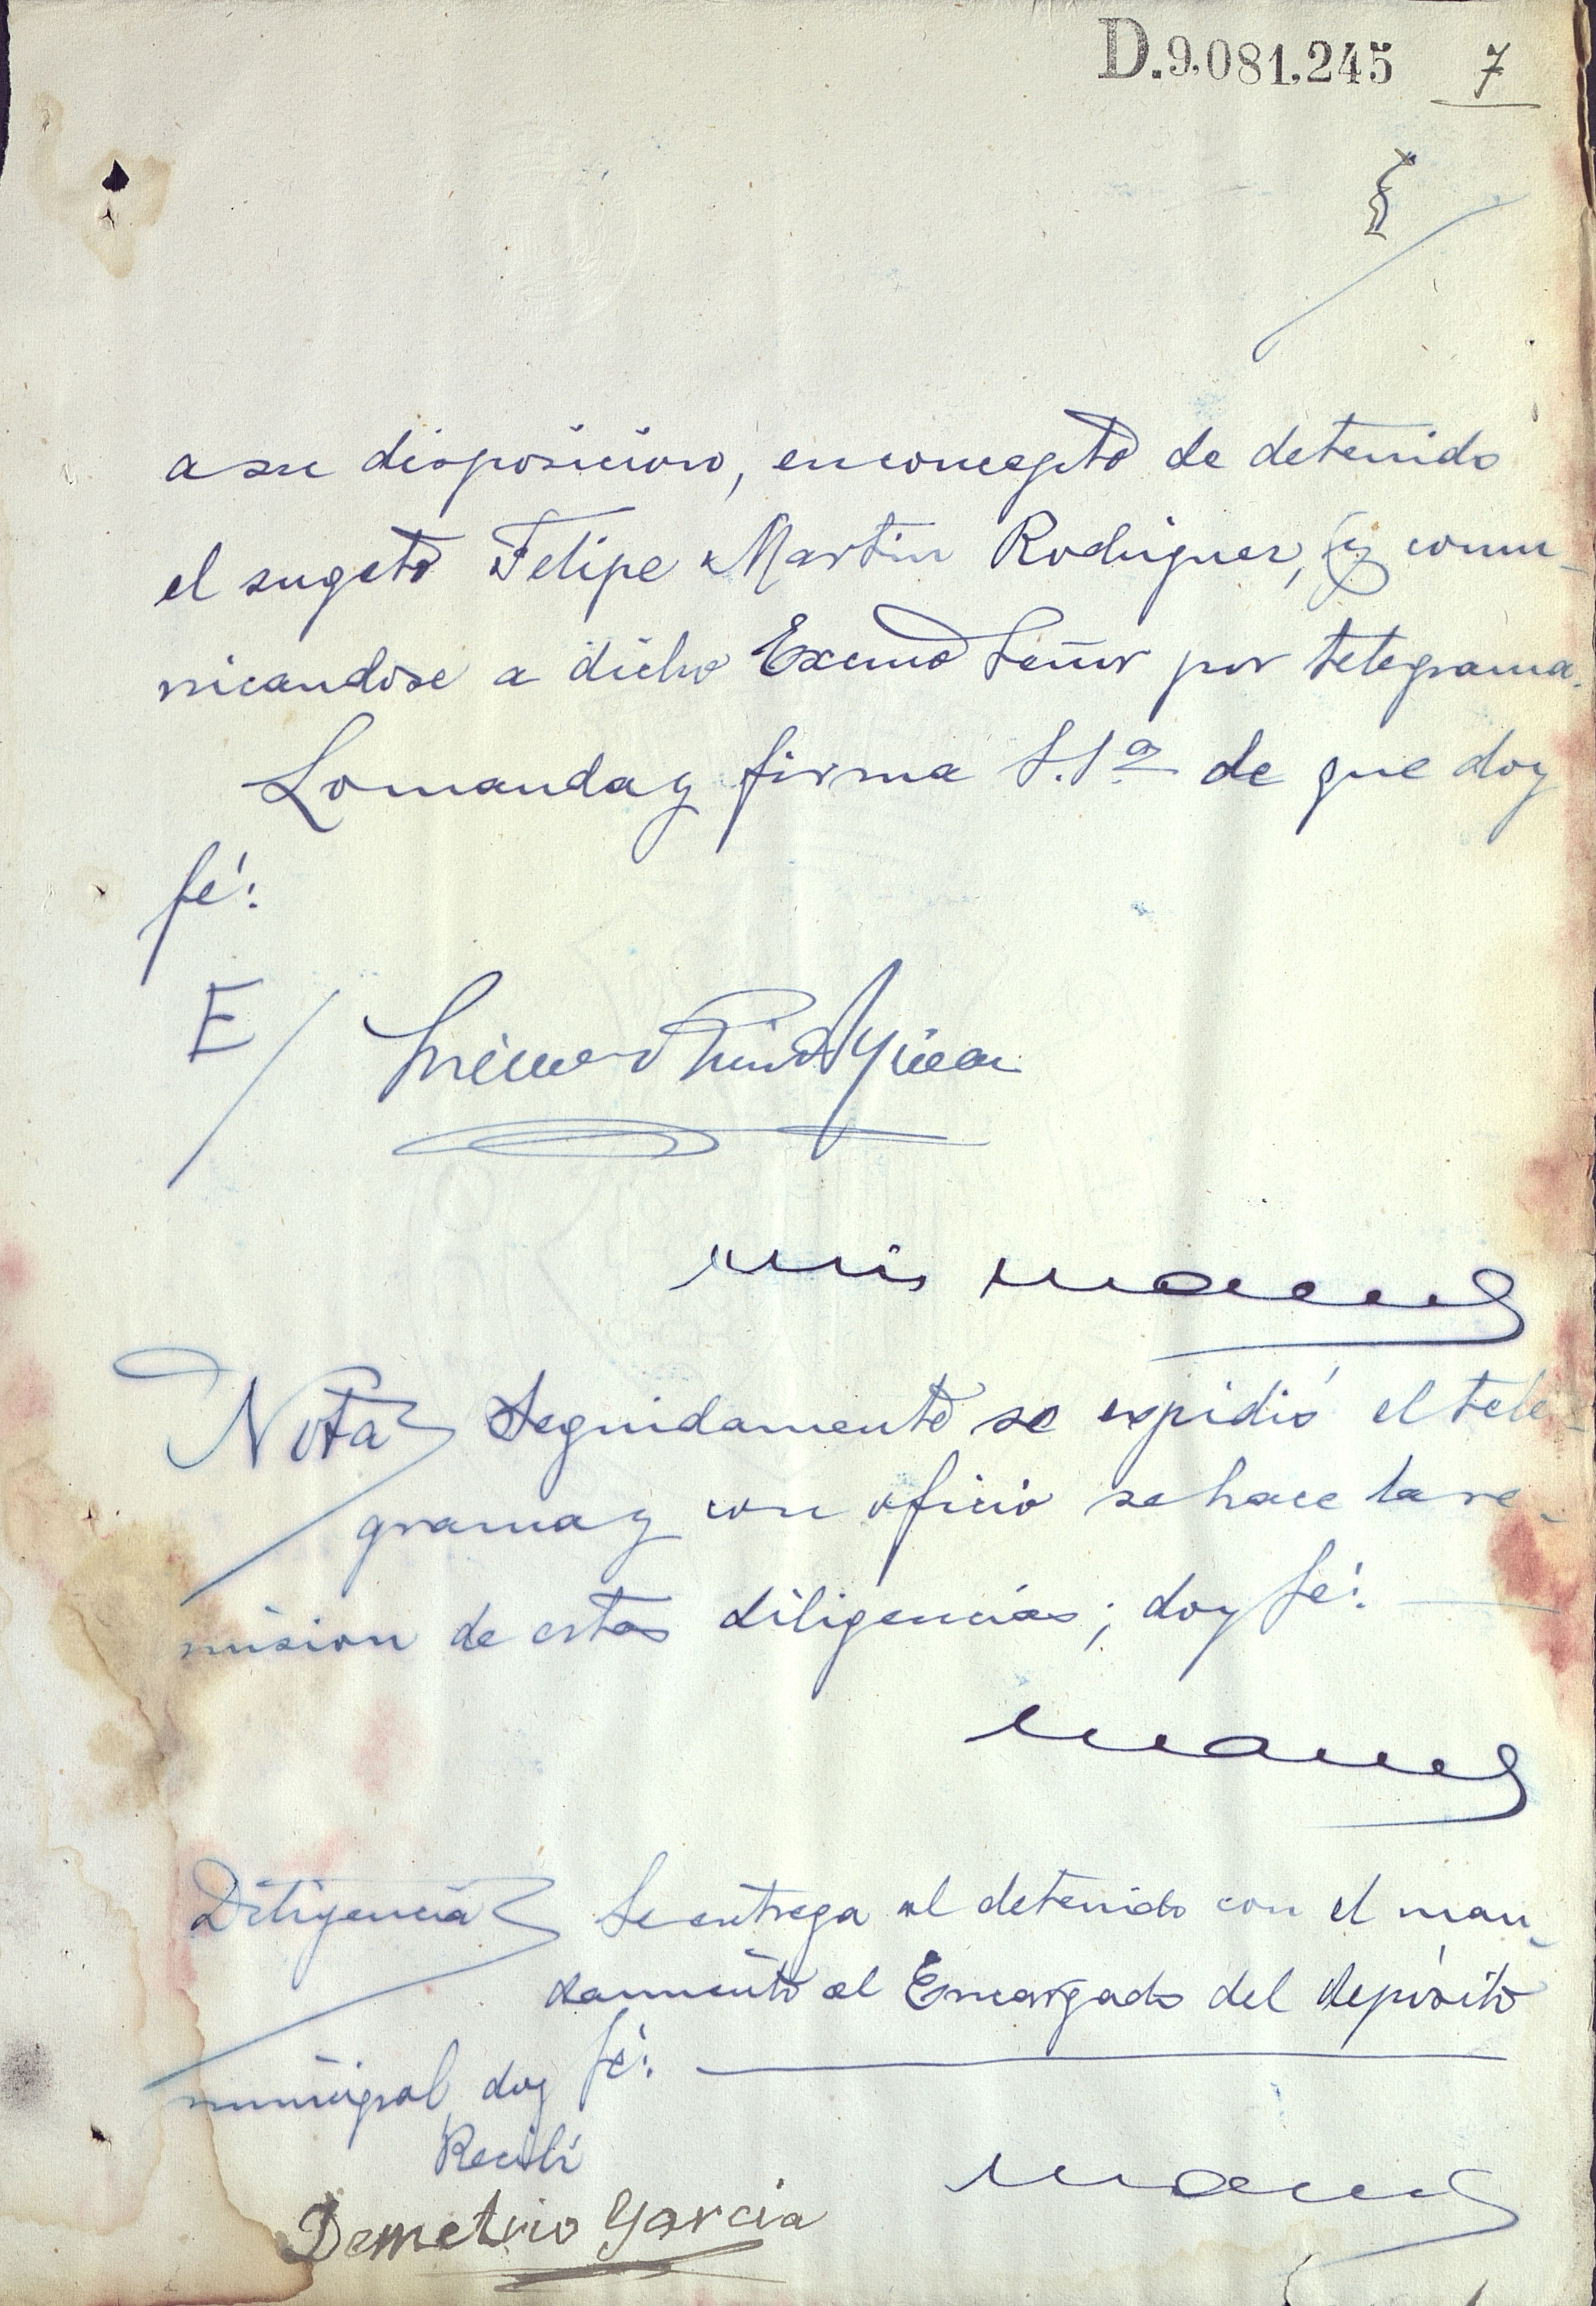 D.9.081.245 7
a su disposicion, en concepto de detenido
el sugeto Felipe Martin Rodriguez, y comu-
nicandose a dicho Excmo Señor por telegrama.
Lo manda y firma S.Sª de que doy
fé:
E/
Nota Seguidamente se expidió el tele-
grama y con oficio se hace la re-
mision de estas diligencias; doy fé:
Diligencia Se entrega al detenido con el man-
damiento al Encargado del depósito
municipal, doy fé:
Recibí
Demetrio Garcia